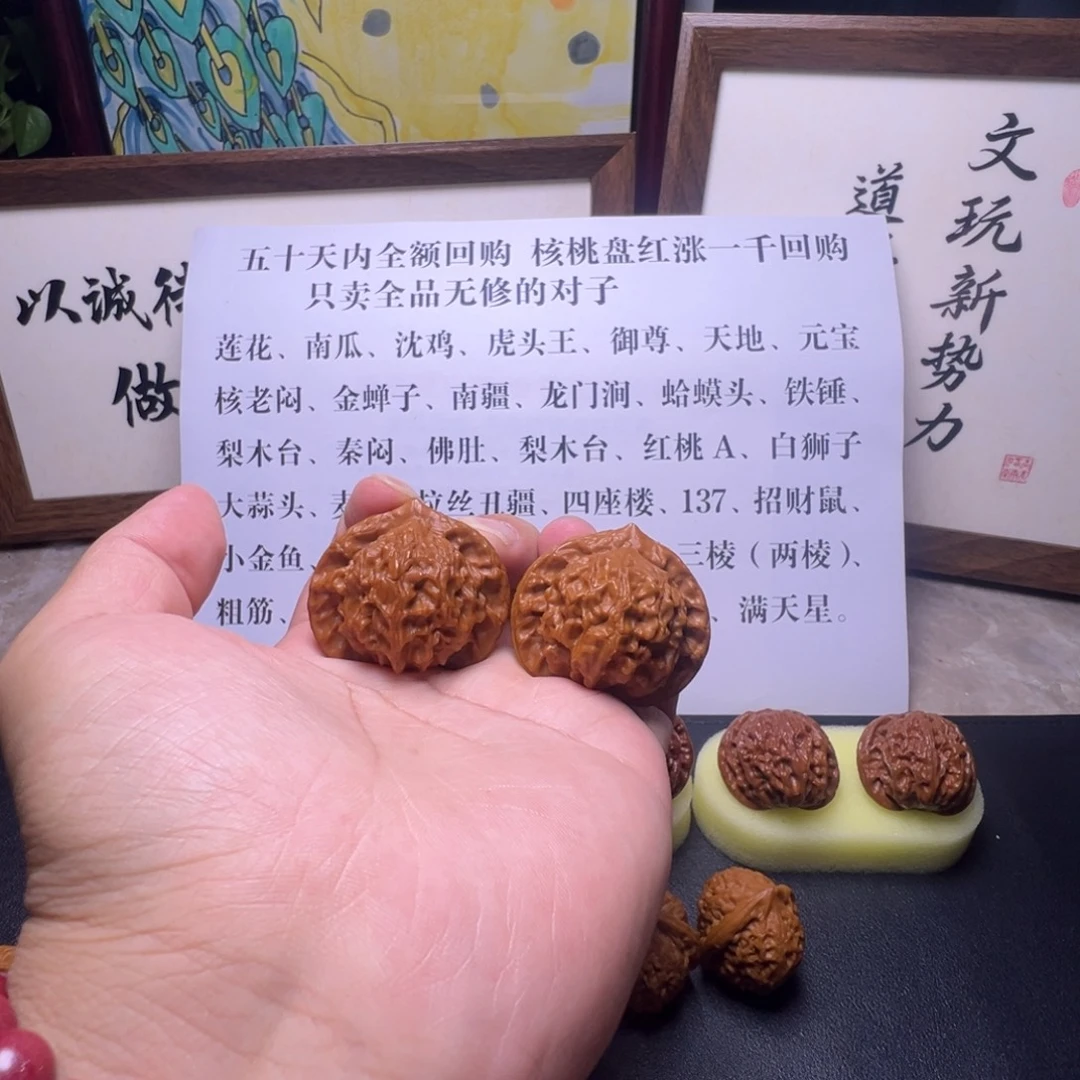 五十天内全额回购 核桃盘红涨一千回购
只卖全品无修的对子
莲花、南瓜、沈鸡、虎头王、御尊、天地、元宝
核老闷、金蝉子、南疆、龙门涧、蛤蟆头、铁锤、
梨木台、秦闷、佛肚、梨木台、红桃A、白狮子
大蒜头、拉丝丑疆、四座楼、137、招财鼠、
小金鱼、三棱（两棱）、
粗筋、、满天星。
以诚待
做
文玩新势力
道